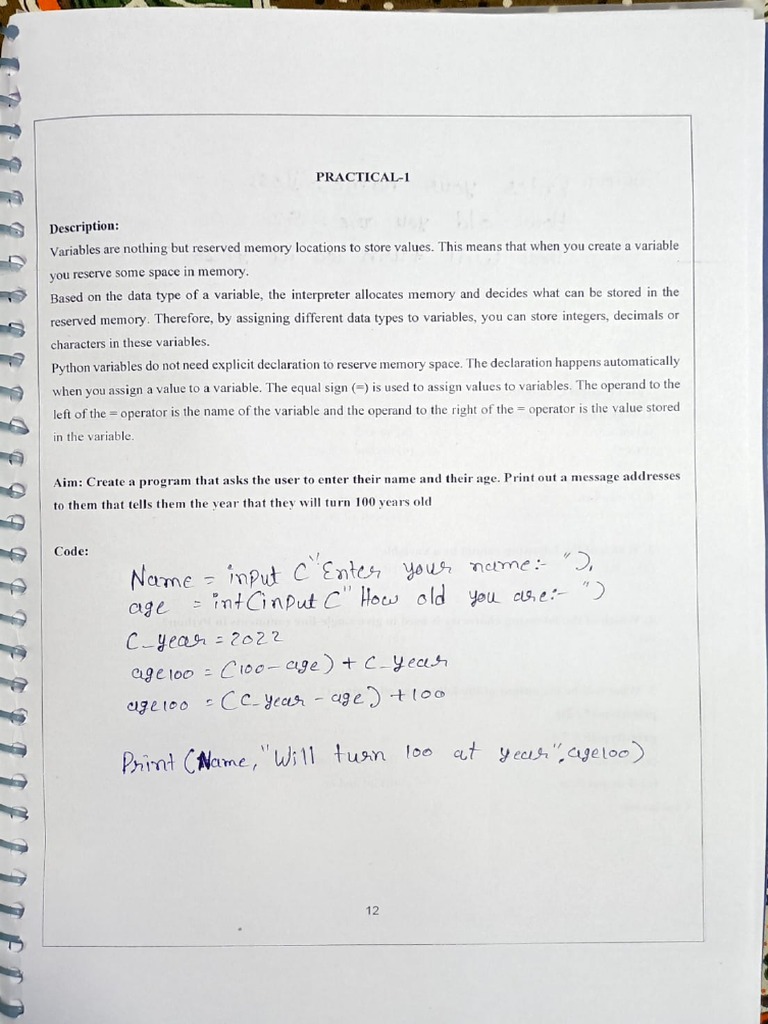 PRACTICAL-1
Description:
Variables are nothing but reserved memory locations to store values. This means that when you create a variable
you reserve some space in memory.
Based on the data type of a variable, the interpreter allocates memory and decides what can be stored in the
reserved memory. Therefore, by assigning different data types to variables, you can store integers, decimals or
characters in these variables.
Python variables do not need explicit declaration to reserve memory space. The declaration happens automatically
when you assign a value to a variable. The equal sign (=) is used to assign values to variables. The operand to the
left of the = operator is the name of the variable and the operand to the right of the = operator is the value stored
in the variable.
Aim: Create a program that asks the user to enter their name and their age. Print out a message addresses
to them that tells them the year that they will turn 100 years old
Code:
Name = input ("Enter your name:- "),
age = int(input (" How old you are:- ")
C_year = 2022
age100 = (100 - age) + C_year
age100 = (C_year - age) + 100
Print (Name, "Will turn 100 at year", age100)
12